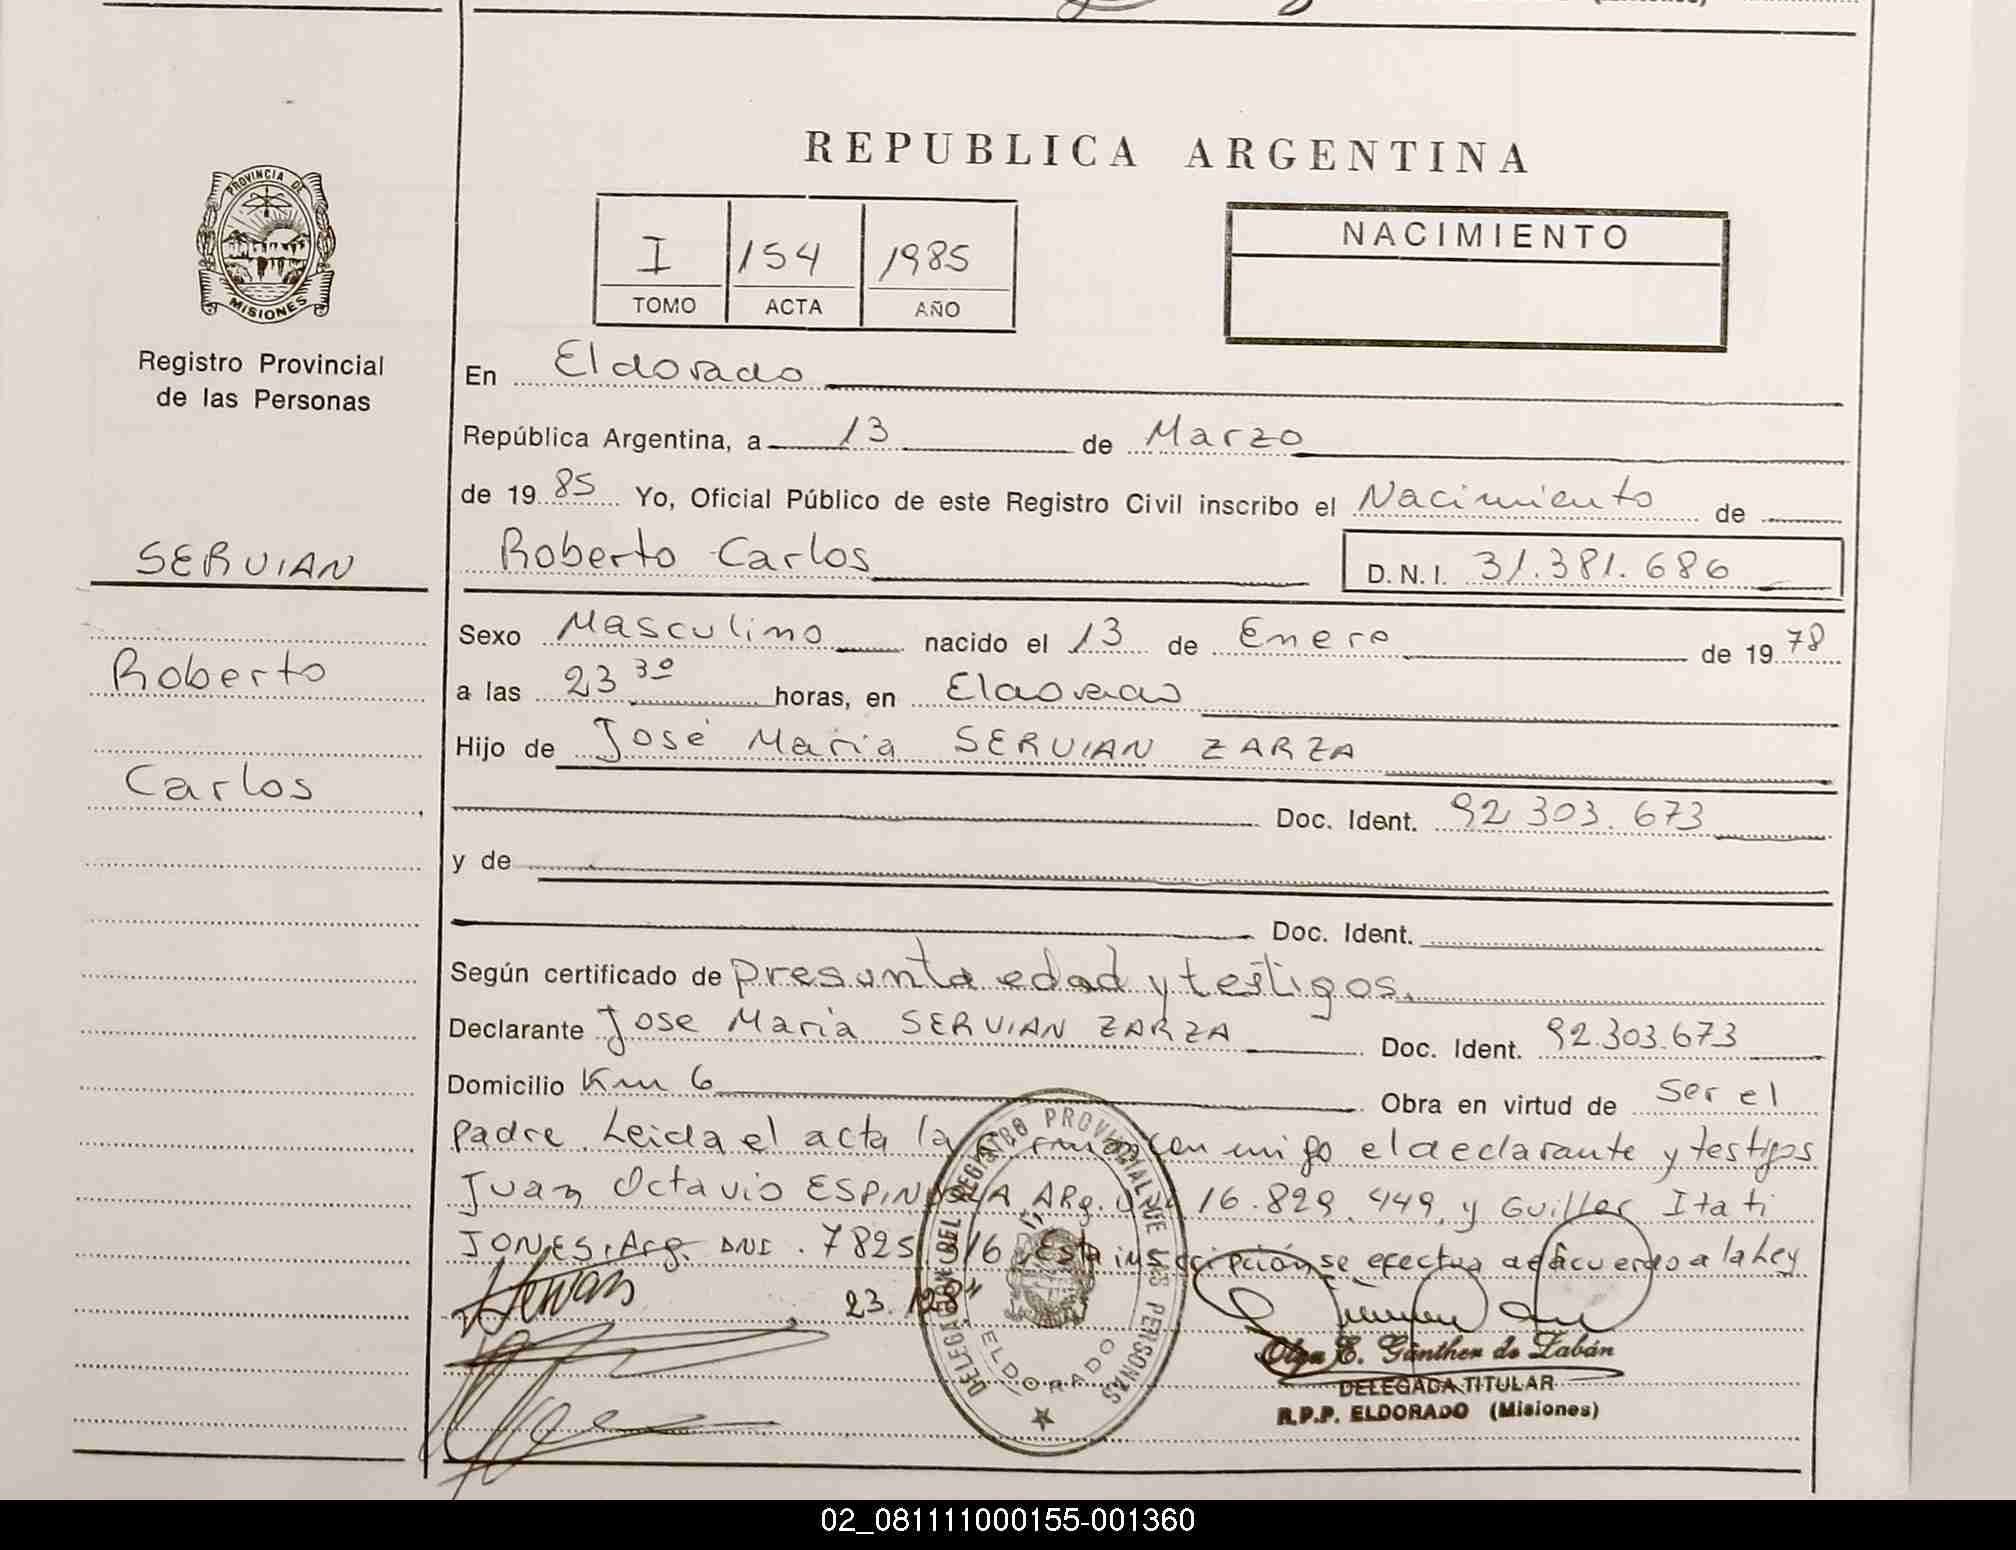 REPUBLICA ARGENTINA
PROVINCIA DE
MISIONES
Registro Provincial
de las Personas
I 154 1985
TOMO ACTA AÑO
NACIMIENTO
En Eldorado
República Argentina, a 13 de Marzo
de 1985 Yo, Oficial Público de este Registro Civil inscribo el Nacimiento de
SERVIAN
Roberto Carlos D.N.I. 31.381.686
Sexo Masculino nacido el 13 de Enero de 1978
Roberto
a las 23 30 horas, en Eldorado
Hijo de José Maria SERVIAN ZARZA
Carlos
Doc. Ident. 92 303.673
y de
Doc. Ident.
Según certificado de presunta edad y testigos.
Declarante Jose Maria SERVIAN ZARZA Doc. Ident. 92.303.673
Domicilio Km 6 Obra en virtud de ser el
padre. Leida el acta la conmigo el declarante y testigos
Juan Octavio ESPINDOLA ARg. 16.829.449, y Guiller Itati
JONES, Arg. DNI. 7825 316 Esta inscripción se efectua de acuerdo a la Ley
23.128"
DELEGACION DEL REGISTRO PROVINCIAL DE LAS PERSONAS
ELDORADO
Olga E. Günther de Zabán
DELEGADA TITULAR
R.P.P. ELDORADO (Misiones)
02_081111000155-001360